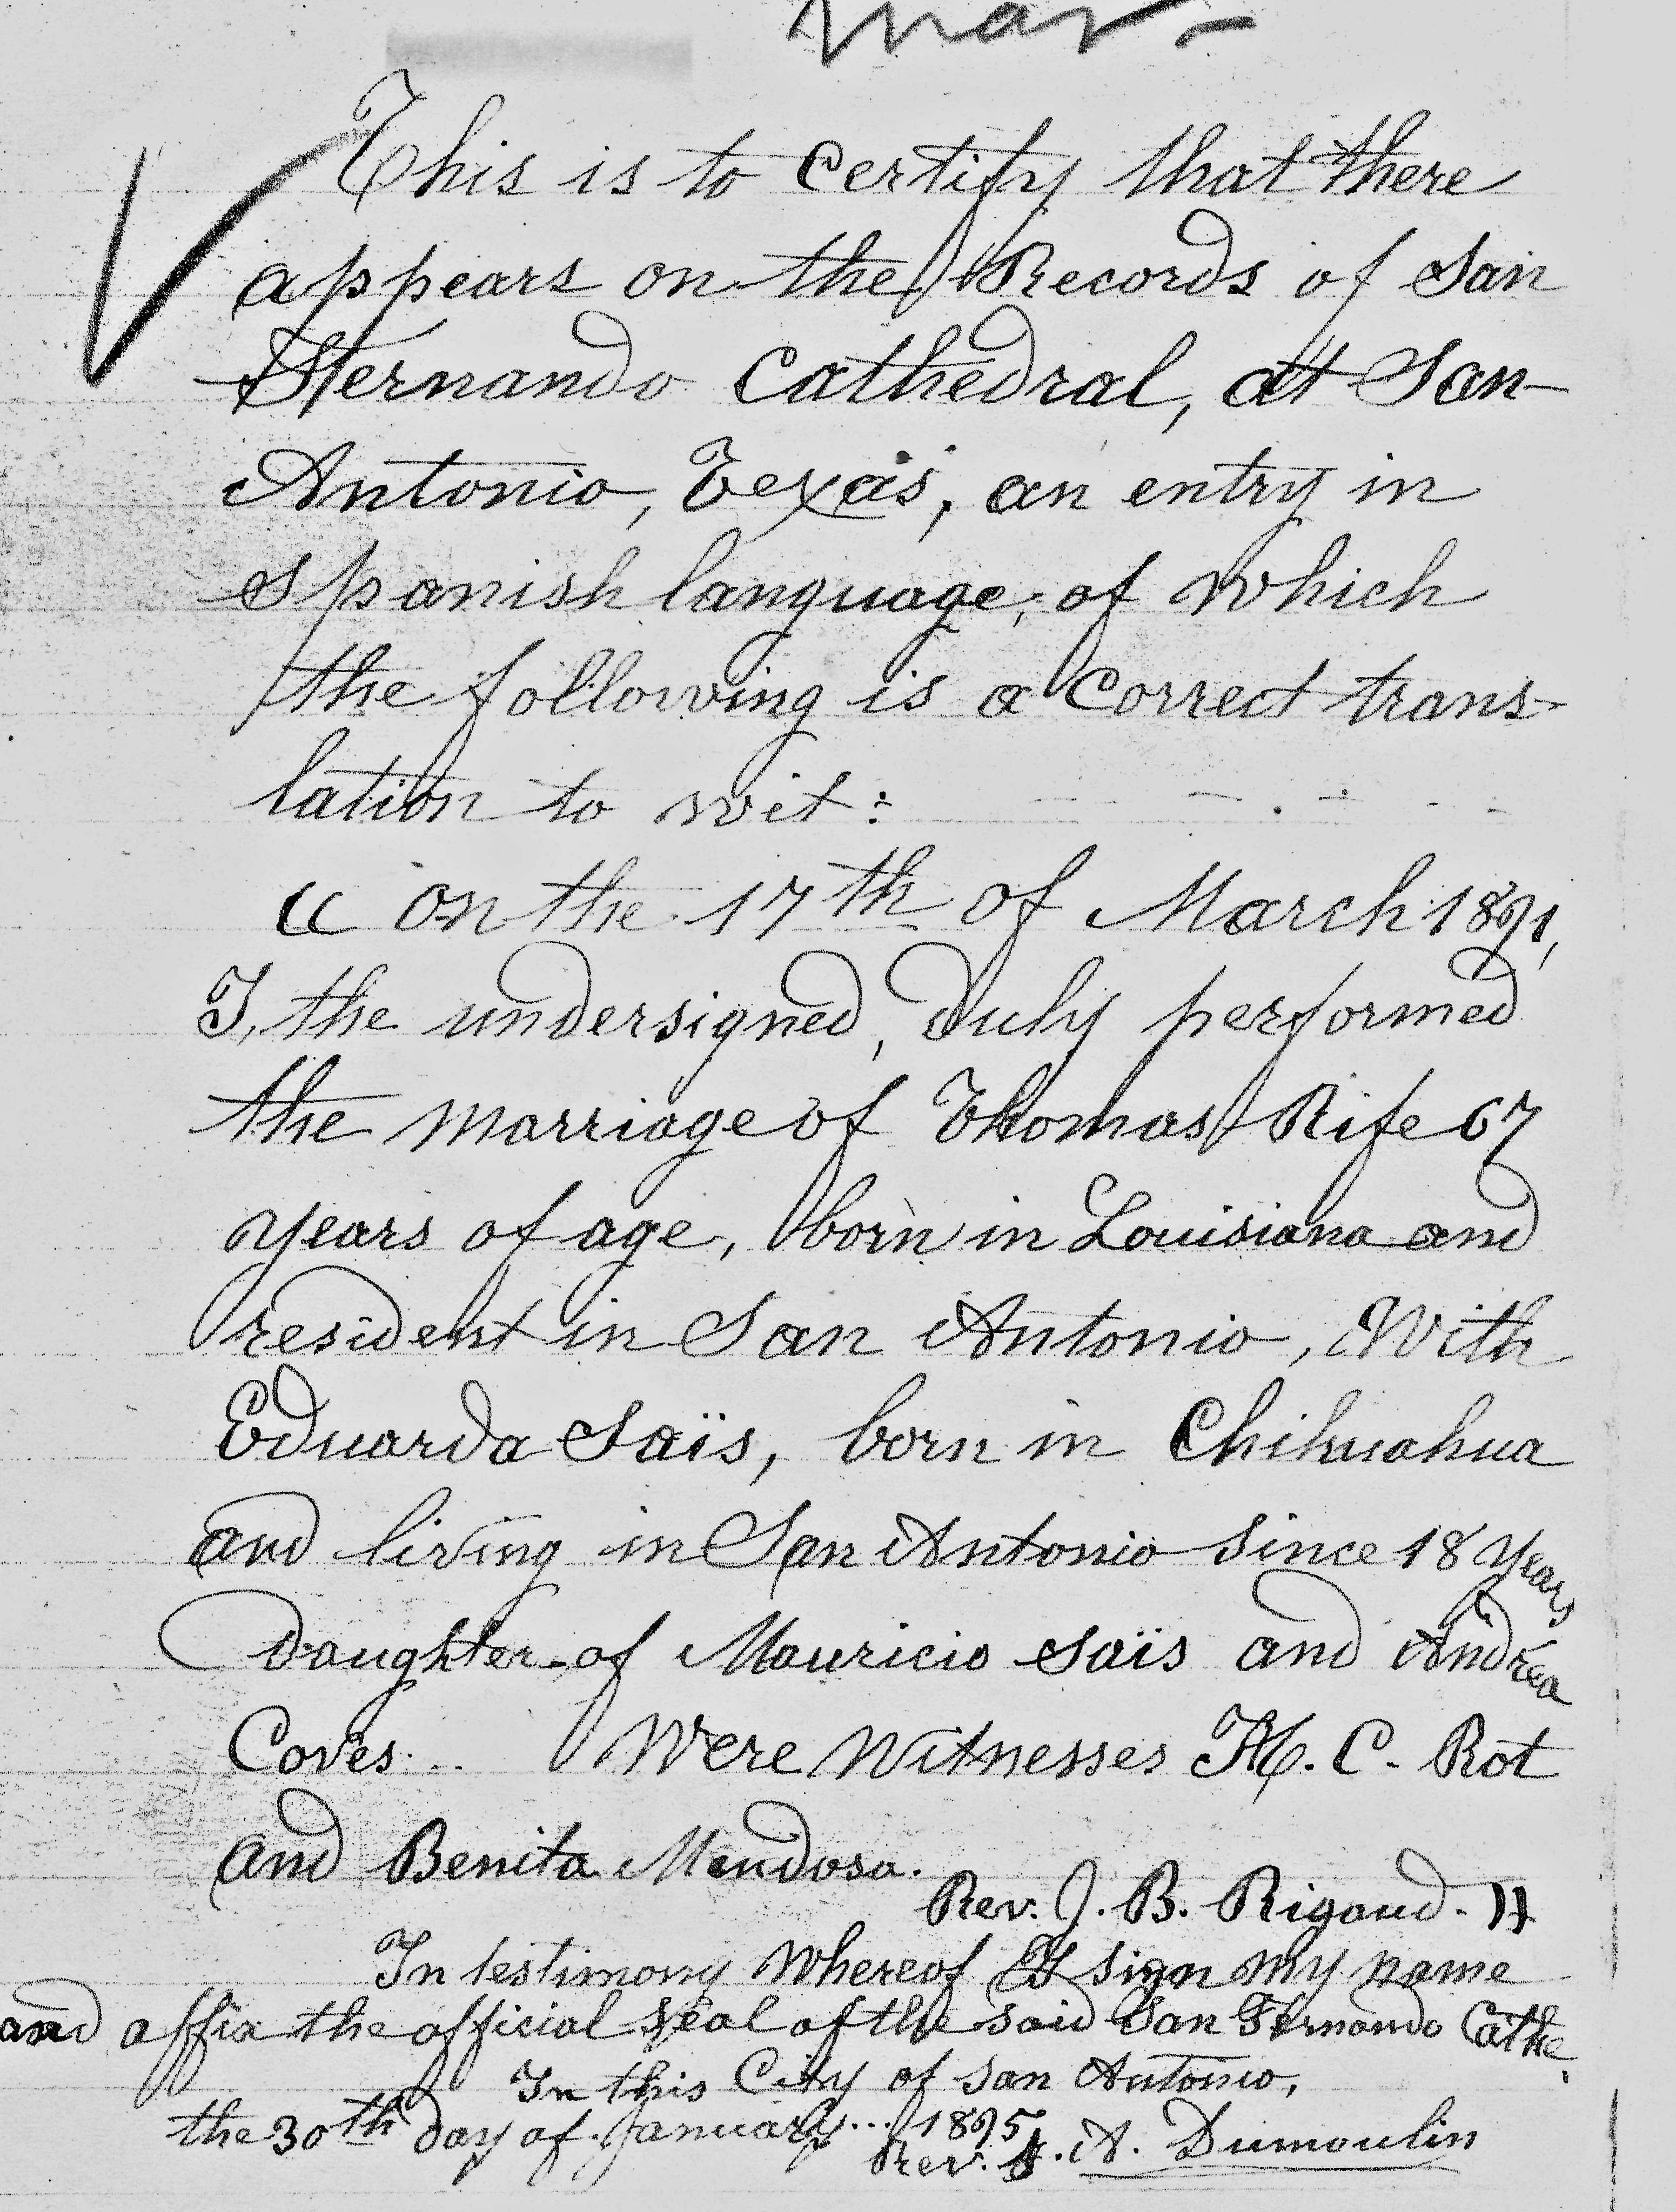 Mar-
This is to Certify that there
appears on the Records of San
Fernando Cathedral, at San
Antonio, Texas, an entry in
Spanish language, of which
the following is a Correct trans-
lation to wit:
"On the 17th of March 1891,
I, the undersigned, duly performed
the marriage of Thomas Rife 67
years of age, born in Louisiana and
resident in San Antonio, With
Eduarda Saïs, born in Chihuahua
and living in San Antonio since 18 years
Daughter of Mauricio Saïs and Andrea
Coves. Were Witnesses H. C. Rot
and Benita Mendosa.
Rev. J. B. Rigaud. "
In testimony Whereof I sign my name
and affix the official seal of the said San Fernando Cathe.
In this City of San Antonio,
the 30th day of January... 1895
Rev. J. A. Dumoulin